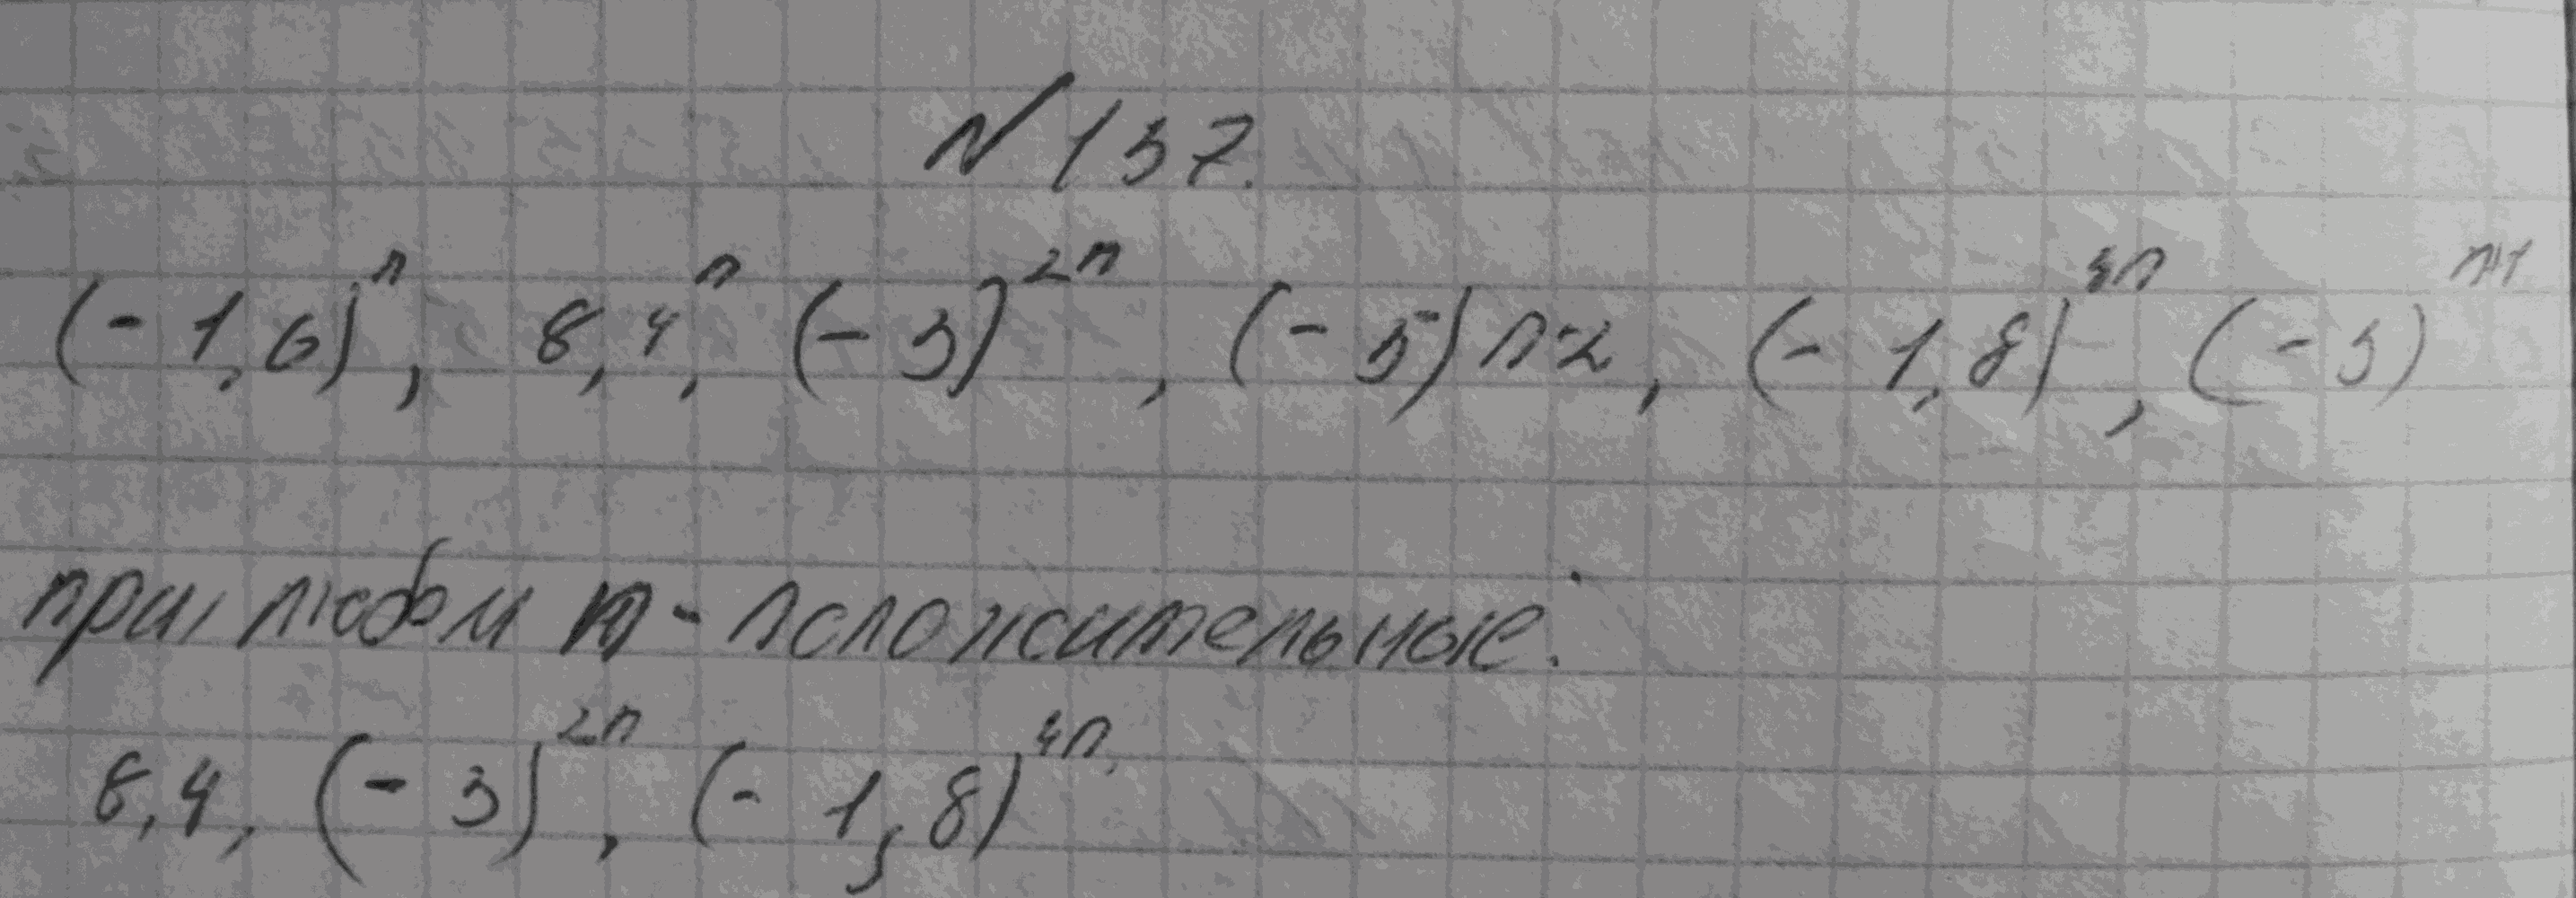 № 137.
(- 1,6)ⁿ, 8,4ⁿ, (- 3)²ⁿ, (- 5) n2, (- 1,8)⁴ⁿ, (- 3)ⁿ⁺¹
при любом n - положительные.
8,4, (- 3)²ⁿ, (- 1,8)⁴ⁿ.